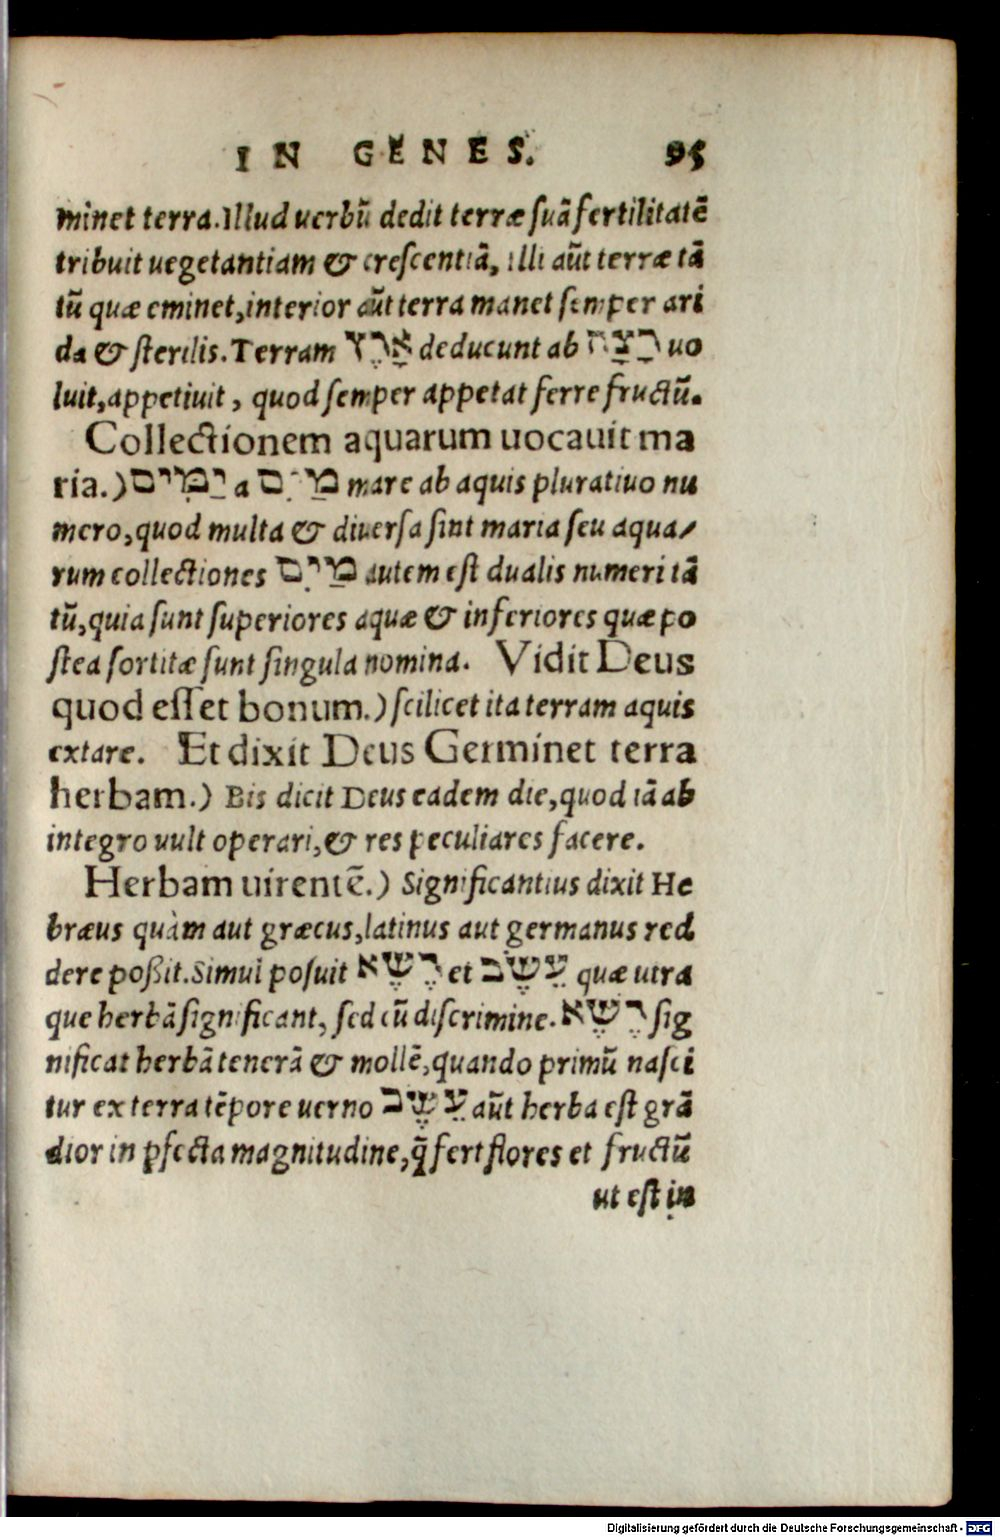 IN GENES. 95
minet terra. Illud uerbũ dedit terræ suã fertilitatẽ
tribuit uegetantiam & crescentiã, illi aũt terræ tã
tũ quæ eminet, interior aũt terra manet semper ari
da & sterilis. Terram אֶרֶץ deducunt ab רָצָה uo
luit, appetiuit, quod semper appetat ferre fructũ.
Collectionem aquarum uocauit ma
ria.) יַמִּים a מַיִם mare ab aquis pluratiuo nu
mero, quod multa & diuersa sint maria seu aqua/
rum collectiones מַיִם autem est dualis numeri tã
tũ, quia sunt superiores aquæ & inferiores quæ po
stea sortitæ sunt singula nomina. Vidit Deus
quod esset bonum.) scilicet ita terram aquis
extare. Et dixit Deus Germinet terra
herbam.) Bis dicit Deus eadem die, quod iã ab
integro uult operari, & res peculiares facere.
Herbam uirentẽ.) Significantius dixit He
bræus quàm aut græcus, latinus aut germanus red
dere poßit. Simul posuit דֶּשֶׁא et עֵשֶׂב quæ utra
que herbã significant, sed cũ discrimine. דֶּשֶׁא sig
nificat herbã tenerã & mollẽ, quando primũ nasci
tur ex terra tẽpore uerno עֵשֶׂב aũt herba est grã
dior in ꝑfecta magnitudine, q̃ fert flores et fructũ
ut est in
Digitalisierung gefördert durch die Deutsche Forschungsgemeinschaft - DFG